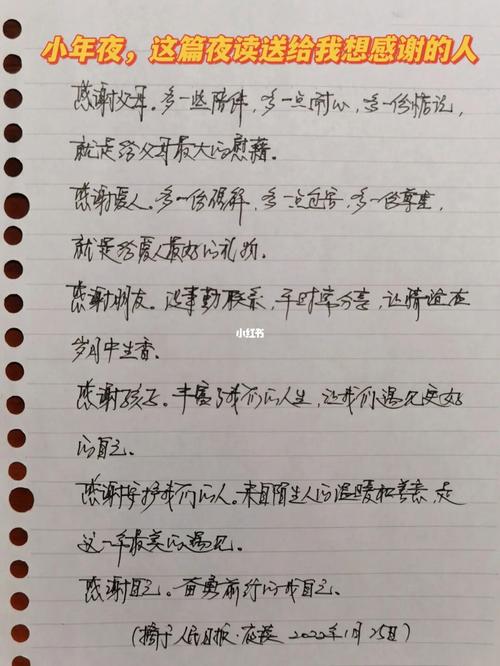 小年夜，这篇夜读送给我想感谢的人
感谢父母。多一些陪伴，多一点耐心，多一份惦记，
就是给父母最大的慰藉。
感谢爱人。多一份理解，多一点包容，多一份尊重，
就是给爱人最好的礼物。
感谢朋友。没事勤联系，平时常分享，让情谊在
岁月中生香。
小红书
感谢孩子。丰富了我们的人生，让我们遇见更好
的自己。
感谢守护我们的人。来自陌生人的温暖和善意，是
这一年最美的遇见。
感谢自己。奋勇前行的我自己。
（摘于人民日报·夜读 2022年1月25日）